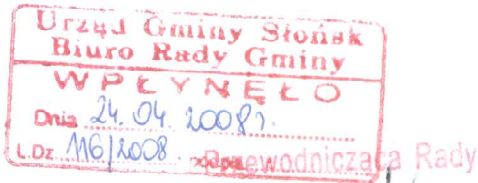 Urząd Gminy Słońsk
Biuro Rady Gminy
WPŁYNĘŁO
Dnia 24.04.2008r.
L.Dz. 116/2008 Przewodnicząca Rady